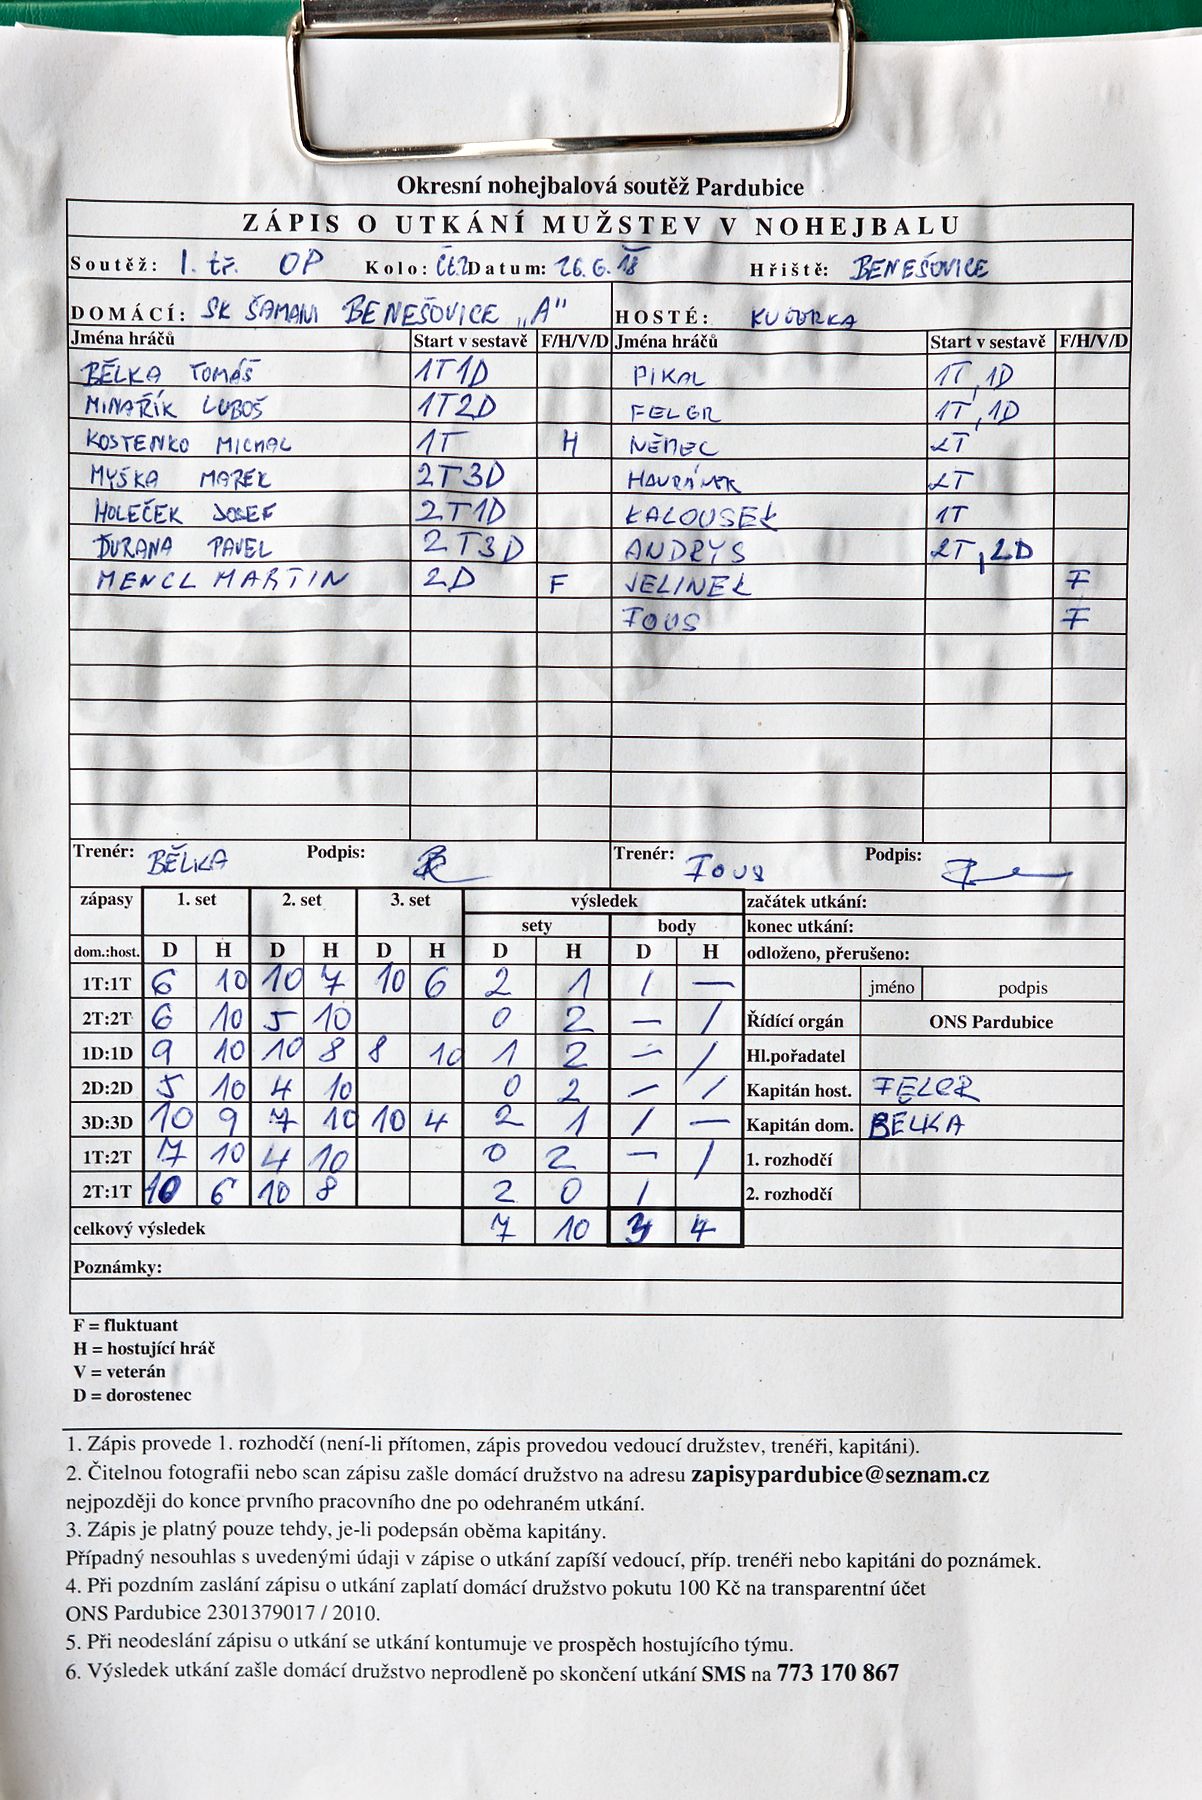 Okresní nohejbalová soutěž Pardubice
ZÁPIS O UTKÁNÍ MUŽSTEV V NOHEJBALU
Soutěž: 1. tř. OP Kolo: Datum: 26.6.18 Hřiště: BENEŠOVICE
DOMÁCÍ: SK ŠAMANI BENEŠOVICE „A" HOSTÉ:
Jména hráčů Start v sestavě F/H/V/D Jména hráčů Start v sestavě F/H/V/D
BĚLKA TOMÁŠ 1T1D PIKAL 1T,1D
MINAŘÍK LUBOŠ 1T2D FELGR 1T,1D
KOSTENKO MICHAL 1T H NĚMEC 2T
MYŠKA MAREK 2T3D HAVRÁNEK 2T
HOLEČEK JOSEF 2T1D KALOUSEK 1T
ĎURANA PAVEL 2T3D ANDRYS 2T,2D
MENCL MARTIN 2D F JELINEK F
FOUS F
Trenér: BĚLKA Podpis: Trenér: FOUS Podpis:
zápasy 1. set 2. set 3. set výsledek začátek utkání:
sety body konec utkání:
dom.:host. D H D H D H D H D H odloženo, přerušeno:
1T:1T 6 10 10 7 10 6 2 1 1 — jméno podpis
2T:2T 6 10 5 10 0 2 — 1 Řídící orgán ONS Pardubice
1D:1D 9 10 10 8 8 10 1 2 — 1 Hl.pořadatel
2D:2D 5 10 4 10 0 2 — 1 Kapitán host. FELGR
3D:3D 10 9 7 10 10 4 2 1 1 — Kapitán dom. BĚLKA
1T:2T 7 10 4 10 0 2 — 1 1. rozhodčí
2T:1T 10 6 10 8 2 0 1 2. rozhodčí
celkový výsledek 7 10 3 4
Poznámky:
F = fluktuant
H = hostující hráč
V = veterán
D = dorostenec
1. Zápis provede 1. rozhodčí (není-li přítomen, zápis provedou vedoucí družstev, trenéři, kapitáni).
2. Čitelnou fotografii nebo scan zápisu zašle domácí družstvo na adresu zapisypardubice@seznam.cz
nejpozději do konce prvního pracovního dne po odehraném utkání.
3. Zápis je platný pouze tehdy, je-li podepsán oběma kapitány.
Případný nesouhlas s uvedenými údaji v zápise o utkání zapíší vedoucí, příp. trenéři nebo kapitáni do poznámek.
4. Při pozdním zaslání zápisu o utkání zaplatí domácí družstvo pokutu 100 Kč na transparentní účet
ONS Pardubice 2301379017 / 2010.
5. Při neodeslání zápisu o utkání se utkání kontumuje ve prospěch hostujícího týmu.
6. Výsledek utkání zašle domácí družstvo neprodleně po skončení utkání SMS na 773 170 867